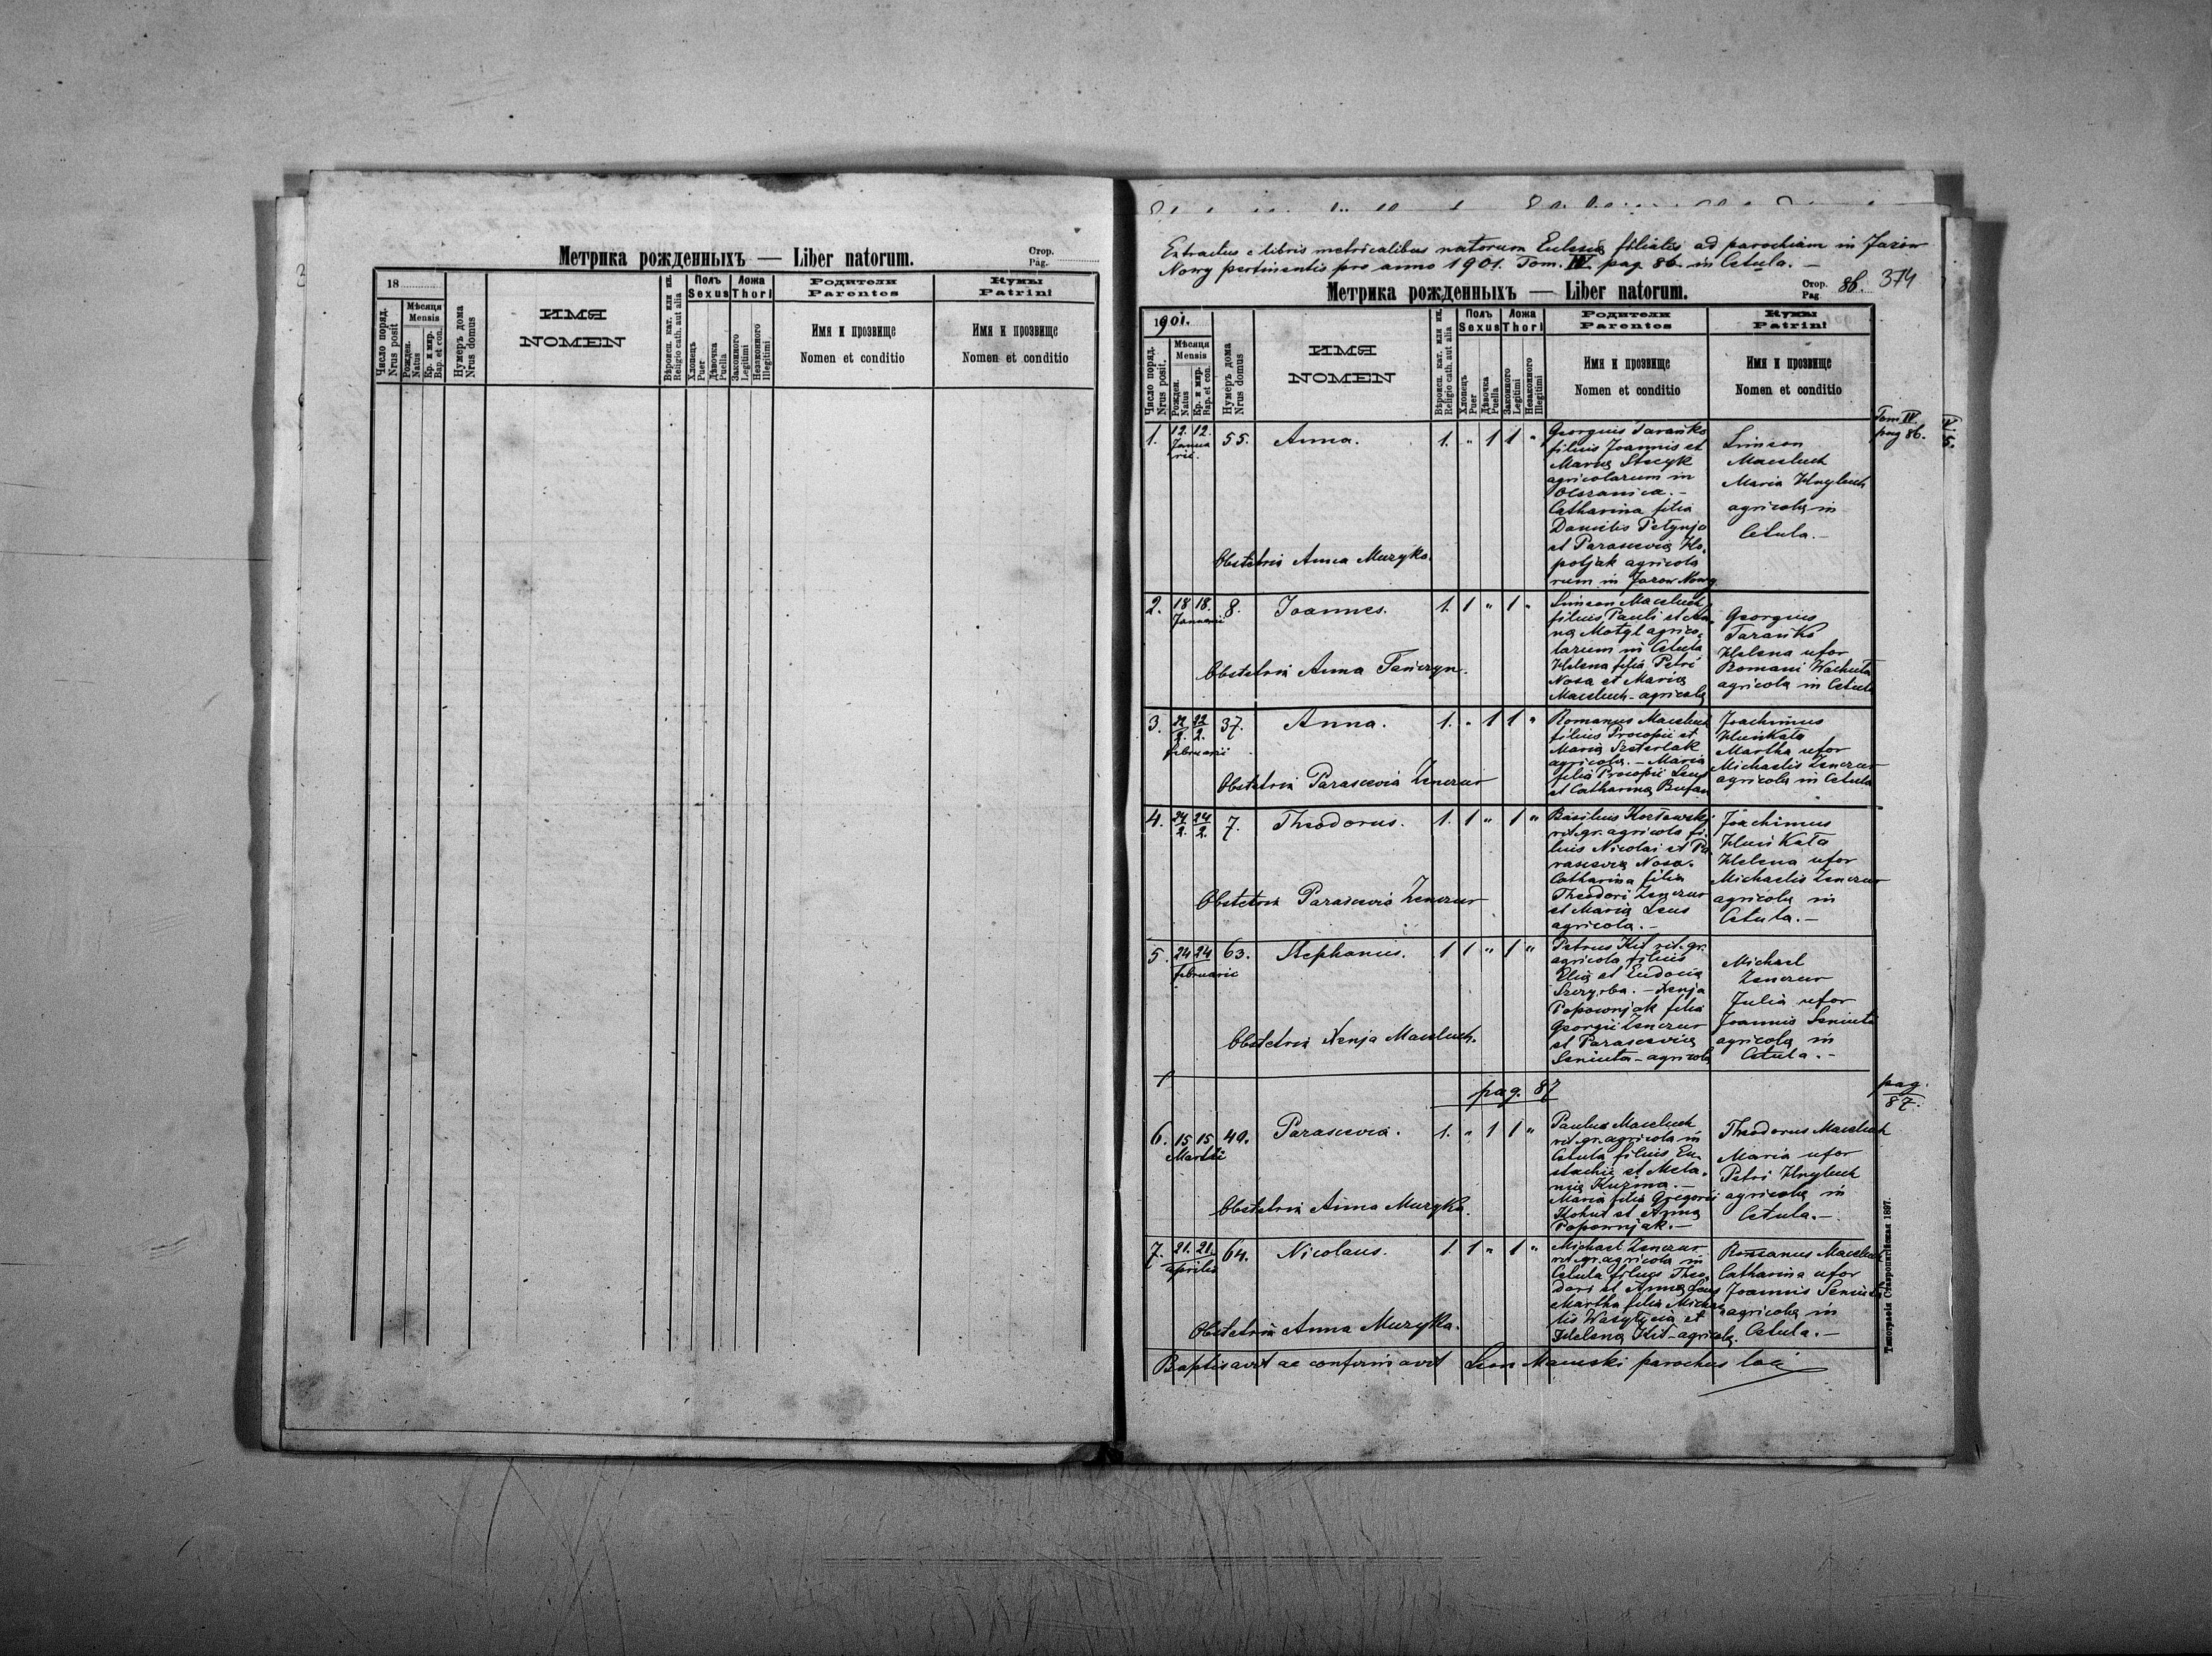 Метрика рожденныхъ — Liber natorum.
Стор.
Pag.
18
Число поряд.
Nrus posit
Мѣсяця
Mensis
Рожден.
Natus
Кр. и мир.
Bap. et con.
Нумеръ дома
Nrus domus
ИМЯ
NOMEN
Вѣроисп. кат. или ин.
Religio cath. aut alia
Полъ
Sexus
Хлопецъ
Puer
Дѣвочка
Puella
Ложа
Thori
Законного
Legitimi
Незаконного
Illegitimi
Родители
Parentes
Имя и прозвище
Nomen et conditio
Кумы
Patrini
Имя и прозвище
Nomen et conditio
Extractus e libris metricalibus natorum Ecclesiæ filialis ad parochiam in Jazów
Nowy pertinentis pro anno 1901. Tom. IV pag 86 in Cetula. —
Метрика рожденныхъ — Liber natorum.
Стор.
Pag.
86. 374
1901.
Число поряд.
Nrus posit.
Мѣсяця
Mensis
Рожден.
Natus
Кр. и мир.
Bap. et con.
Нумеръ дома
Nrus domus
ИМЯ
NOMEN
Вѣроисп. кат. или ин.
Religio cath. aut alia
Полъ
Sexus
Хлопецъ
Puer
Дѣвочка
Puella
Ложа
Thori
Законного
Legitimi
Незаконного
Illegitimi
Родители
Parentes
Имя и прозвище
Nomen et conditio
Кумы
Patrini
Имя и прозвище
Nomen et conditio
Tom IV.
pag 86.
1. 12. 12. 55. Anna. 1. " 1 1 "
Janua
rii.
Georgius Tarańko
filius Joannis et
Mariæ Stecyk
agricolarum in
Olszanica. —
Catharina filia
Danielis Petynja
et Parasceviæ Ko-
poljak agricola
rum in Jazow Nowy
Simeon
Maceluch
Maria Hnyluch
agricolæ in
Cetula. —
Obstetrix Anna Muzyka.
2. 18 18. 8. Joannes. 1. 1 " 1 "
Januarii
Simeon Maceluch
filius Pauli et An-
næ Motyl agrico-
larum in Cetula
Helena filia Petri
Nosa et Mariæ
Maceluch - agricolæ
Georgius
Tarańko
Helena uxor
Romani Wachuta
agricolæ in Cetula
Obstetrix Anna Tenczyn.
3. 22/2. 22/2. 37. Anna. 1. " 1 1 "
februarii
Romanus Maceluch
filius Procopii et
Mariæ Szeterlak
agricolæ. — Maria
filia Procopii Leus
et Catharinæ Bufan
Joachimus
Huńkało
Martha uxor
Michaelis Zenczur
agricolæ in Cetula
Obstetrix Parascevia Zenczur
4. 24/2. 24/2. 7. Theodorus. 1. 1 " 1 "
Basilius Kozłowskij
rit. gr. agricola fi-
lius Nicolai et Pa-
rasceviæ Nosa.
Catharina filia
Theodori Zenczur
et Mariæ Leus
agricola. —
Joachimus
Huńkało
Helena uxor
Michaelis Zenczur
agricolæ in
Cetula. —
Obstetrix Parascevia Zenczur
5. 24 24 63. Stephanus. 1 1 " 1 "
februarii
Petrus Kit rit. gr.
agricola filius
Eliæ et Eudociæ
Szczyrba. — Xenja
Popownjak filia
Georgii Zenczur
et Parasceviæ
Seniuta - agricolæ
Michael
Zenczur
Julia uxor
Joannis Seniuta
agricolæ in
Cetula. —
Obstetrix Xenja Maceluch.
pag. 87
pag.
87.
6. 15 15 40. Parascevia. 1. " 1 1 "
Martii
Paulus Maceluch
rit. gr. agricola in
Cetula filius Eu-
stachii et Mela-
niæ Kuzma. —
Maria filia Gregorii
Kohut et Annæ
Popownjak. —
Theodorus Maceluch
Maria uxor
Petri Hnyluch
agricolæ in
Cetula. —
Obstetrix Anna Muzyka.
7. 21. 21. 64. Nicolaus. 1. 1 " 1 "
aprilis
Michael Zenczur
rit. gr. agricola in
Cetula filius Theo-
dori et Annæ Leus
Martha filia Michae-
lis Wasylycia et
Helenæ Kit - agricolæ.
Romanus Maceluch
Catharina uxor
Joannis Seniuta
agricolæ in
Cetula. —
Obstetrix Anna Muzyka.
Baptisavit ac confirmavit Leon parochus loci
Типографія Ставропигійская 1897.